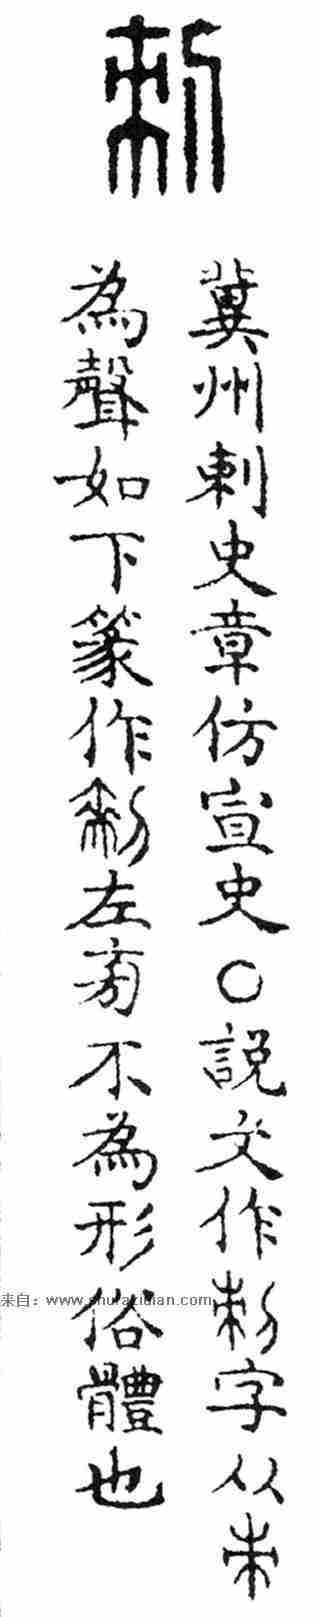 刺
冀州刺史章仿宣史〇說文作刺字从朿
為聲如下篆作刺左旁不為形俗體也
来自：www.shufazidian.com